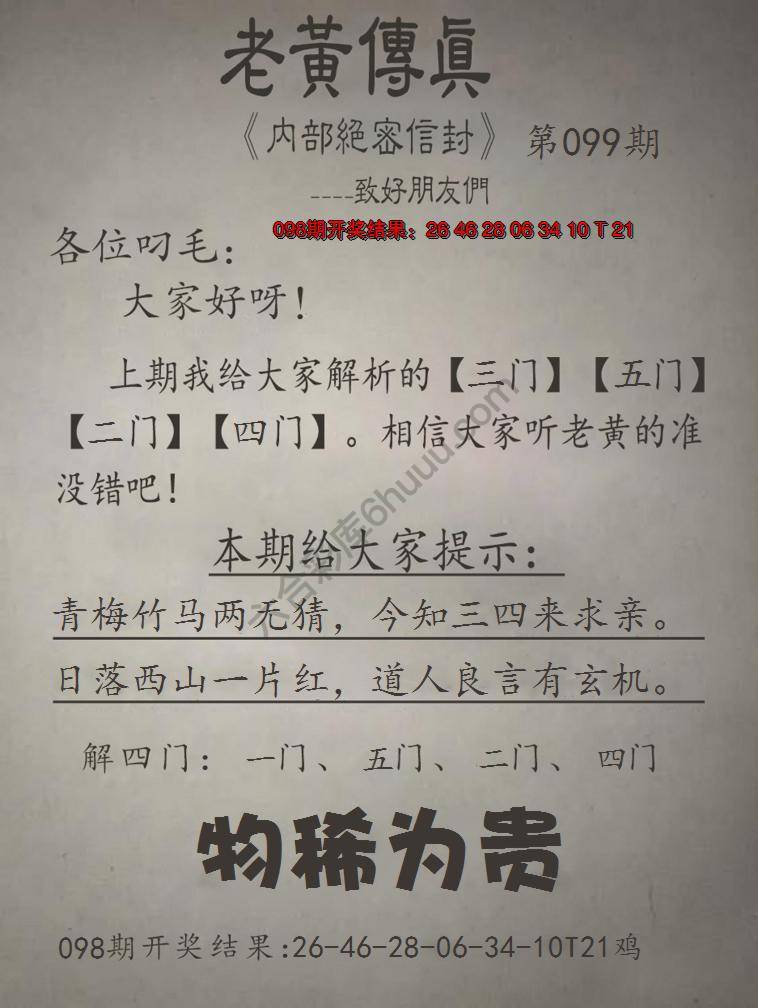 老黃傳眞
《内部絕密信封》 第099期
----致好朋友們
098期开奖结果：26 46 28 06 34 10 T 21
各位叼毛：
大家好呀！
上期我给大家解析的【三门】【五门】
【二门】【四门】。相信大家听老黄的准
没错吧！
本期给大家提示：
青梅竹马两无猜，今知三四来求亲。
日落西山一片红，道人良言有玄机。
解四门： 一门、 五门、 二门、 四门
物稀为贵
098期开奖结果:26-46-28-06-34-10T21鸡
六合彩库6huuu.com